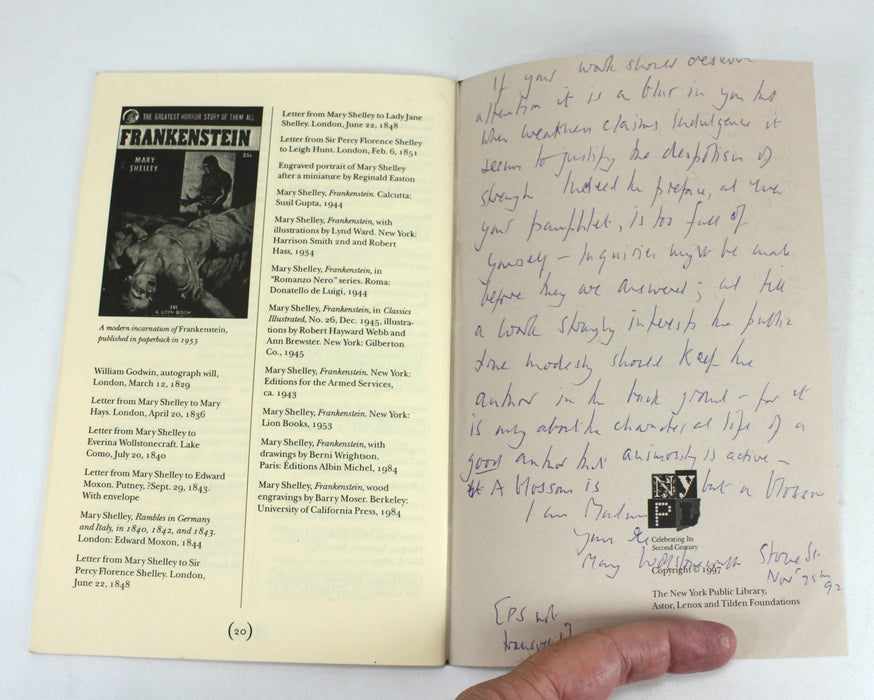 THE GREATEST HORROR STORY OF THEM ALL
FRANKENSTEIN
25c
MARY
SHELLEY
A LION BOOK
A modern incarnation of Frankenstein,
published in paperback in 1953
William Godwin, autograph will,
London, March 12, 1829
Letter from Mary Shelley to Mary
Hays. London, April 20, 1836
Letter from Mary Shelley to
Everina Wollstonecraft. Lake
Como, July 20, 1840
Letter from Mary Shelley to Edward
Moxon. Putney, ?Sept. 29, 1843.
With envelope
Mary Shelley, Rambles in Germany
and Italy, in 1840, 1842, and 1843.
London: Edward Moxon, 1844
Letter from Mary Shelley to Sir
Percy Florence Shelley. London,
June 22, 1848
Letter from Mary Shelley to Lady Jane
Shelley. London, June 22, 1848
Letter from Sir Percy Florence Shelley
to Leigh Hunt. London, Feb. 6, 1851
Engraved portrait of Mary Shelley
after a miniature by Reginald Easton
Mary Shelley, Frankenstein. Calcutta:
Susil Gupta, 1944
Mary Shelley, Frankenstein, with
illustrations by Lynd Ward. New York:
Harrison Smith 2nd and Robert
Hass, 1934
Mary Shelley, Frankenstein, in
"Romanzo Nero" series. Roma:
Donatello de Luigi, 1944
Mary Shelley, Frankenstein, in Classics
Illustrated, No. 26, Dec. 1945, illustra-
tions by Robert Hayward Webb and
Ann Brewster. New York: Gilberton
Co., 1945
Mary Shelley, Frankenstein. New York:
Editions for the Armed Services,
ca. 1943
Mary Shelley, Frankenstein. New York:
Lion Books, 1953
Mary Shelley, Frankenstein, with
drawings by Berni Wrightson.
Paris: Éditions Albin Michel, 1984
Mary Shelley, Frankenstein, wood
engravings by Barry Moser. Berkeley:
University of California Press, 1984
(20)
If your work should deserve
attention it is a blur in you but
when weakness claims indulgence it
seems to justify the despotism of
strength. Indeed the preface, and even
your pamphlet, is too full of
yourself – Inquiries might be made
before they are answered; and till
a work strongly interests the public
true modesty should keep the
author in the back ground – for it
is only about the character and life of a
good author that animosity is active –
A blossom is but a blossom
I am Madam
Yours &c
Mary Wollstonecraft
Store St.
Novr 25th
92
[PS not
NYPL
Celebrating Its
Second Century
Copyright © 1997
The New York Public Library,
Astor, Lenox and Tilden Foundations